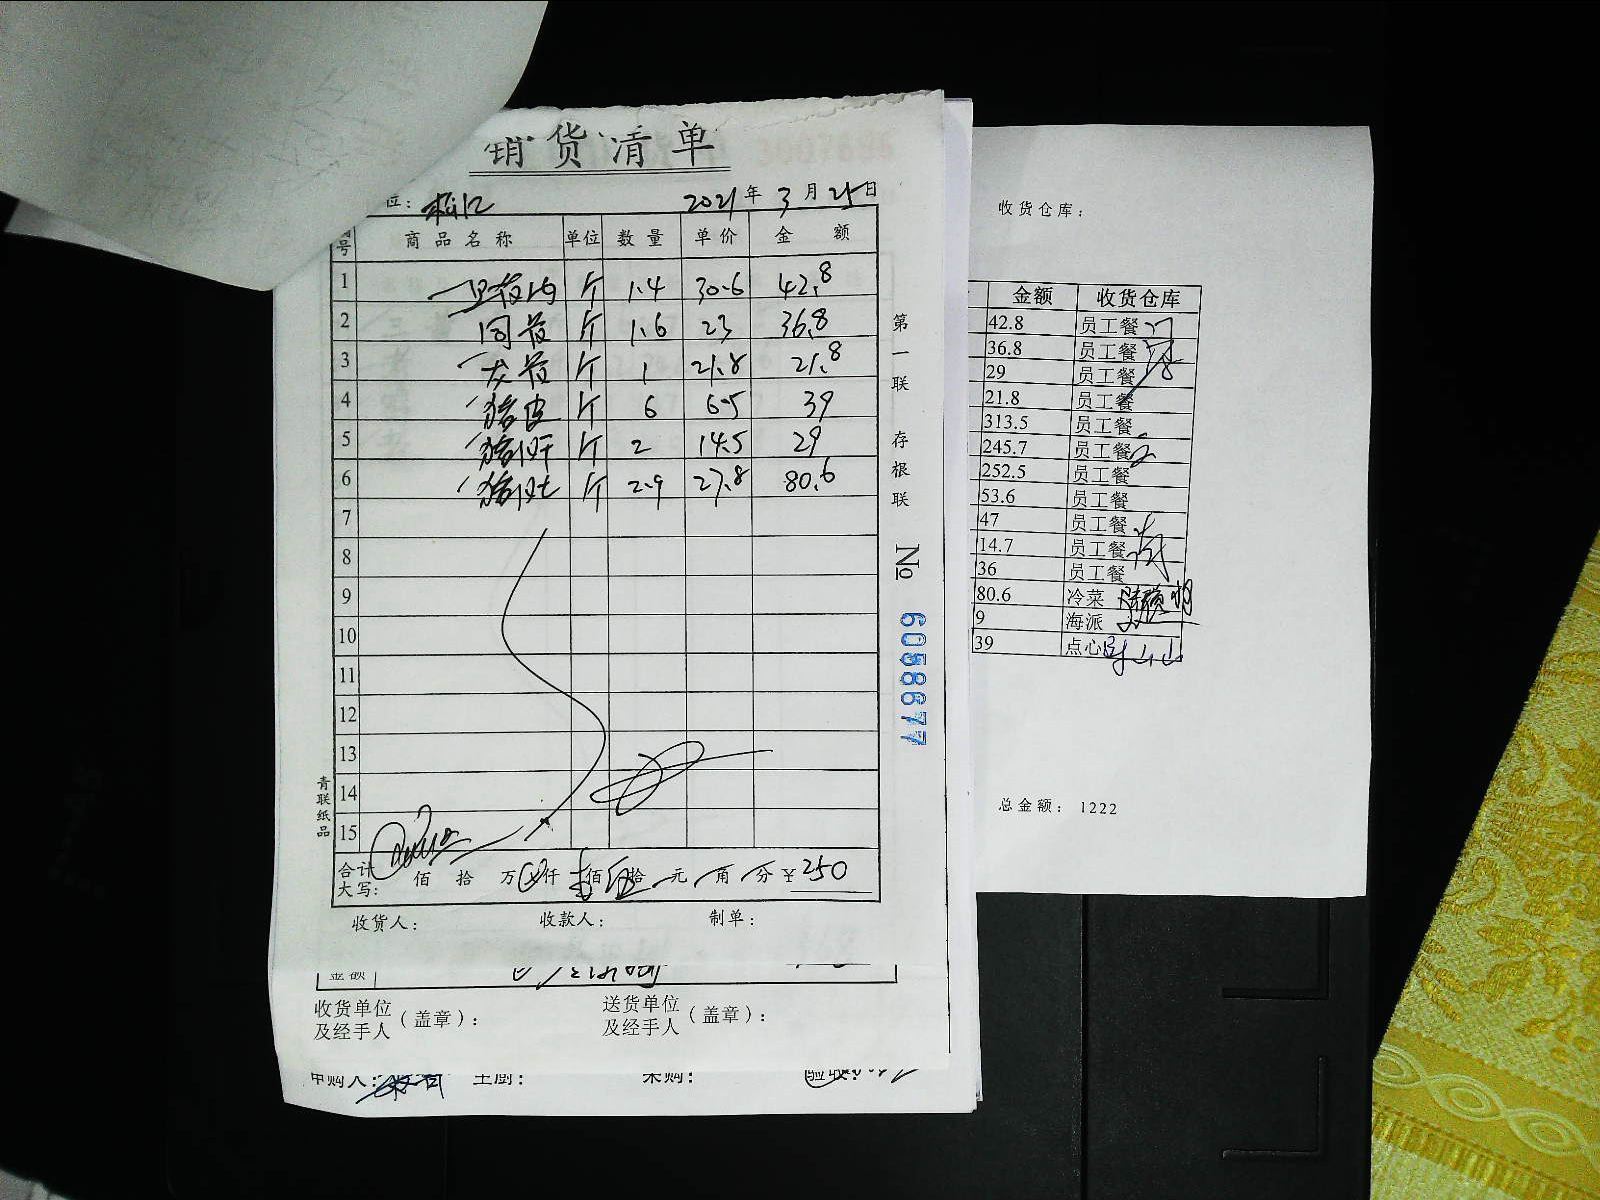 销货清单
位：
2021年3月25日
号 商品名称 单位 数量 单价 金额
1 斤 1.4 30.6 42.8
2 斤 1.6 23 36.8
3 斤 1 21.8 21.8
4 猪皮 斤 6 6.5 39
5 猪肝 斤 2 14.5 29
6 猪肚 斤 2.9 27.8 80.6
7
8
9
10
11
12
13
14
15
合计大写： 佰 拾 万 仟 佰 拾 元 角 分 ¥250
收货人： 收款人： 制单：
青联纸品
第一联 存根联
№ 6058677
金额
收货单位及经手人（盖章）： 送货单位及经手人（盖章）：
申购人： 主厨： 采购： 验收：
收货仓库：
金额 收货仓库
42.8 员工餐
36.8 员工餐
29 员工餐
21.8 员工餐
313.5 员工餐
245.7 员工餐
252.5 员工餐
53.6 员工餐
47 员工餐
14.7 员工餐
36 员工餐
80.6 冷菜
9 海派
39 点心
总金额： 1222